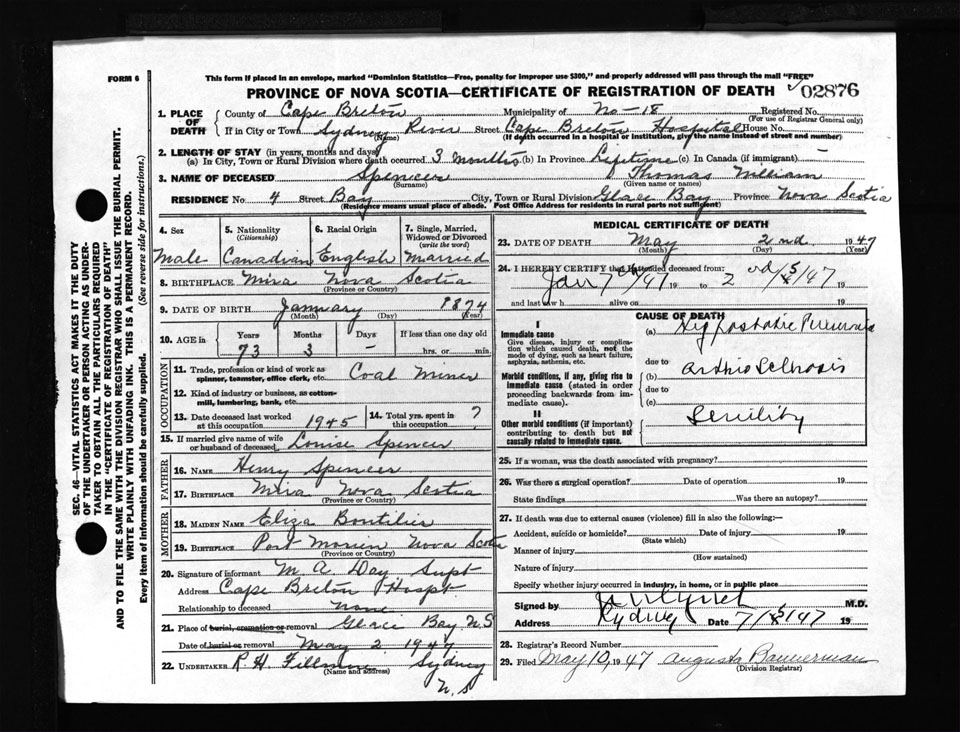 FORM 6
This form if placed in an envelope, marked "Dominion Statistics—Free, penalty for improper use $300," and properly addressed will pass through the mail "FREE"
PROVINCE OF NOVA SCOTIA—CERTIFICATE OF REGISTRATION OF DEATH
02876
1. PLACE OF DEATH
County of Cape Breton Municipality of No-18 Registered No.
(For use of Registrar General only)
If in City or Town Sydney River Street Cape Breton Hospital House No.
(Name) (If death occurred in a hospital or institution, give the name instead of street and number)
2. LENGTH OF STAY (in years, months and days)
(a) In City, Town or Rural Division where death occurred 3 months (b) In Province Lifetime (c) In Canada (if immigrant) —
3. NAME OF DECEASED Spencer Thomas William
(Surname) (Given name or names)
RESIDENCE No 4 Street Bay City, Town or Rural Division Glace Bay Province Nova Scotia
(Residence means usual place of abode. Post Office Address for residents in rural parts not sufficient)
4. Sex Male
5. Nationality (Citizenship) Canadian
6. Racial Origin English
7. Single, Married, Widowed or Divorced (write the word) Married
8. BIRTHPLACE Mira Nova Scotia
(Province or Country)
9. DATE OF BIRTH January 1874
(Month) (Day) (Year)
10. AGE in
Years Months Days If less than one day old
73 3 - hrs. or min
OCCUPATION
11. Trade, profession or kind of work as spinner, teamster, office clerk, etc. Coal Miner
12. Kind of industry or business, as cotton-mill, lumbering, bank, etc.
13. Date deceased last worked at this occupation 1945
14. Total yrs. spent in this occupation ?
15. If married give name of wife or husband of deceased Louise Spencer
FATHER
16. NAME Henry Spencer
17. BIRTHPLACE Mira Nova Scotia
(Province or Country)
MOTHER
18. MAIDEN NAME Eliza Boutilier
19. BIRTHPLACE Port Morien Nova Scotia
(Province or Country)
20. Signature of informant M A Day Supt
Address Cape Breton Hospt
Relationship to deceased none
21. Place of burial, cremation or removal Glace Bay N.S
Date of burial or removal May 2 1947
22. UNDERTAKER R. H. Fillmore Sydney
(Name and address)
N.S
MEDICAL CERTIFICATE OF DEATH
23. DATE OF DEATH May 2nd 1947
(Month) (Day) (Year)
24. I HEREBY CERTIFY that I attended deceased from:
Jan 7 /47 19 to 2 /5/47 19
and last saw h alive on 19
CAUSE OF DEATH
I
Immediate cause
Give disease, injury or complication which caused death, not the mode of dying, such as heart failure, asphyxia, asthenia, etc.
(a) Hypostatic Pneumonia
due to
Morbid conditions, if any, giving rise to immediate cause (stated in order proceeding backwards from immediate cause).
(b)
due to
(c)
II
Other morbid conditions (if important) contributing to death but not causally related to immediate cause.
Senility
25. If a woman, was the death associated with pregnancy?
26. Was there a surgical operation? Date of operation 19
State findings Was there an autopsy?
27. If death was due to external causes (violence) fill in also the following:—
Accident, suicide or homicide? Date of injury 19
(State which)
Manner of injury
(How sustained)
Nature of injury
Specify whether injury occurred in industry, in home, or in public place
Signed by M.D.
Address Sydney Date 7/5/47 19
28. Registrar's Record Number
29. Filed May 10, 1947 Augusta Bannerman
(Division Registrar)
SEC. 46—VITAL STATISTICS ACT MAKES IT THE DUTY
OF THE UNDERTAKER OR PERSON ACTING AS UNDER-
TAKER TO OBTAIN ALL THE PARTICULARS REQUIRED
IN THE "CERTIFICATE OF REGISTRATION OF DEATH"
AND TO FILE THE SAME WITH THE DIVISION REGISTRAR WHO SHALL ISSUE THE BURIAL PERMIT.
WRITE PLAINLY WITH UNFADING INK. THIS IS A PERMANENT RECORD.
Every item of information should be carefully supplied. (See reverse side for instructions.)